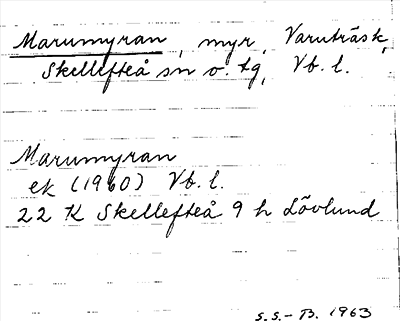 Marumyran, myr, Varuträsk,
Skellefteå sn o. tg, Vb. l.
Marumyran
ek (1960) Vb. l.
22 K Skellefteå 9 h Lövlund
S.S.-B. 1963